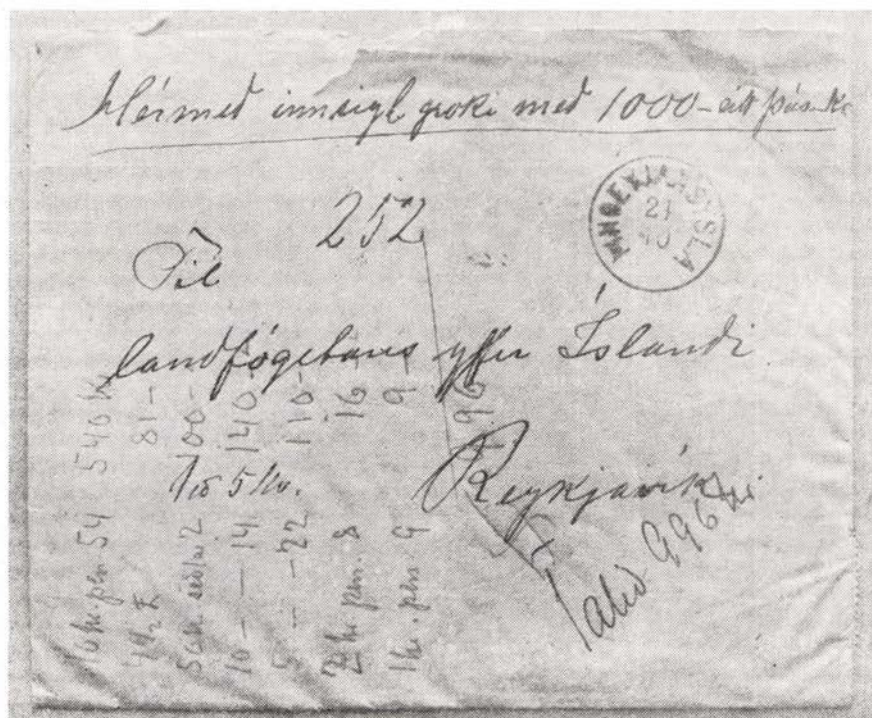 Hérmeð innsigl poki með 1000 - eitt þús. Kr
252
ÁRNESSÝSLA
21
10
Til
landfógetans yfir Íslandi
Reykjavík
Vó 5 Kv.
Talið 996 kr.
10 kr. pen 54 540 k
4 1/2 £ 81 -
50 kr. seðlar 2 100 -
10 - - 14 140
5 - - 22 110
2 kr. pen. 8 16
1 kr. pen. 9 9
996